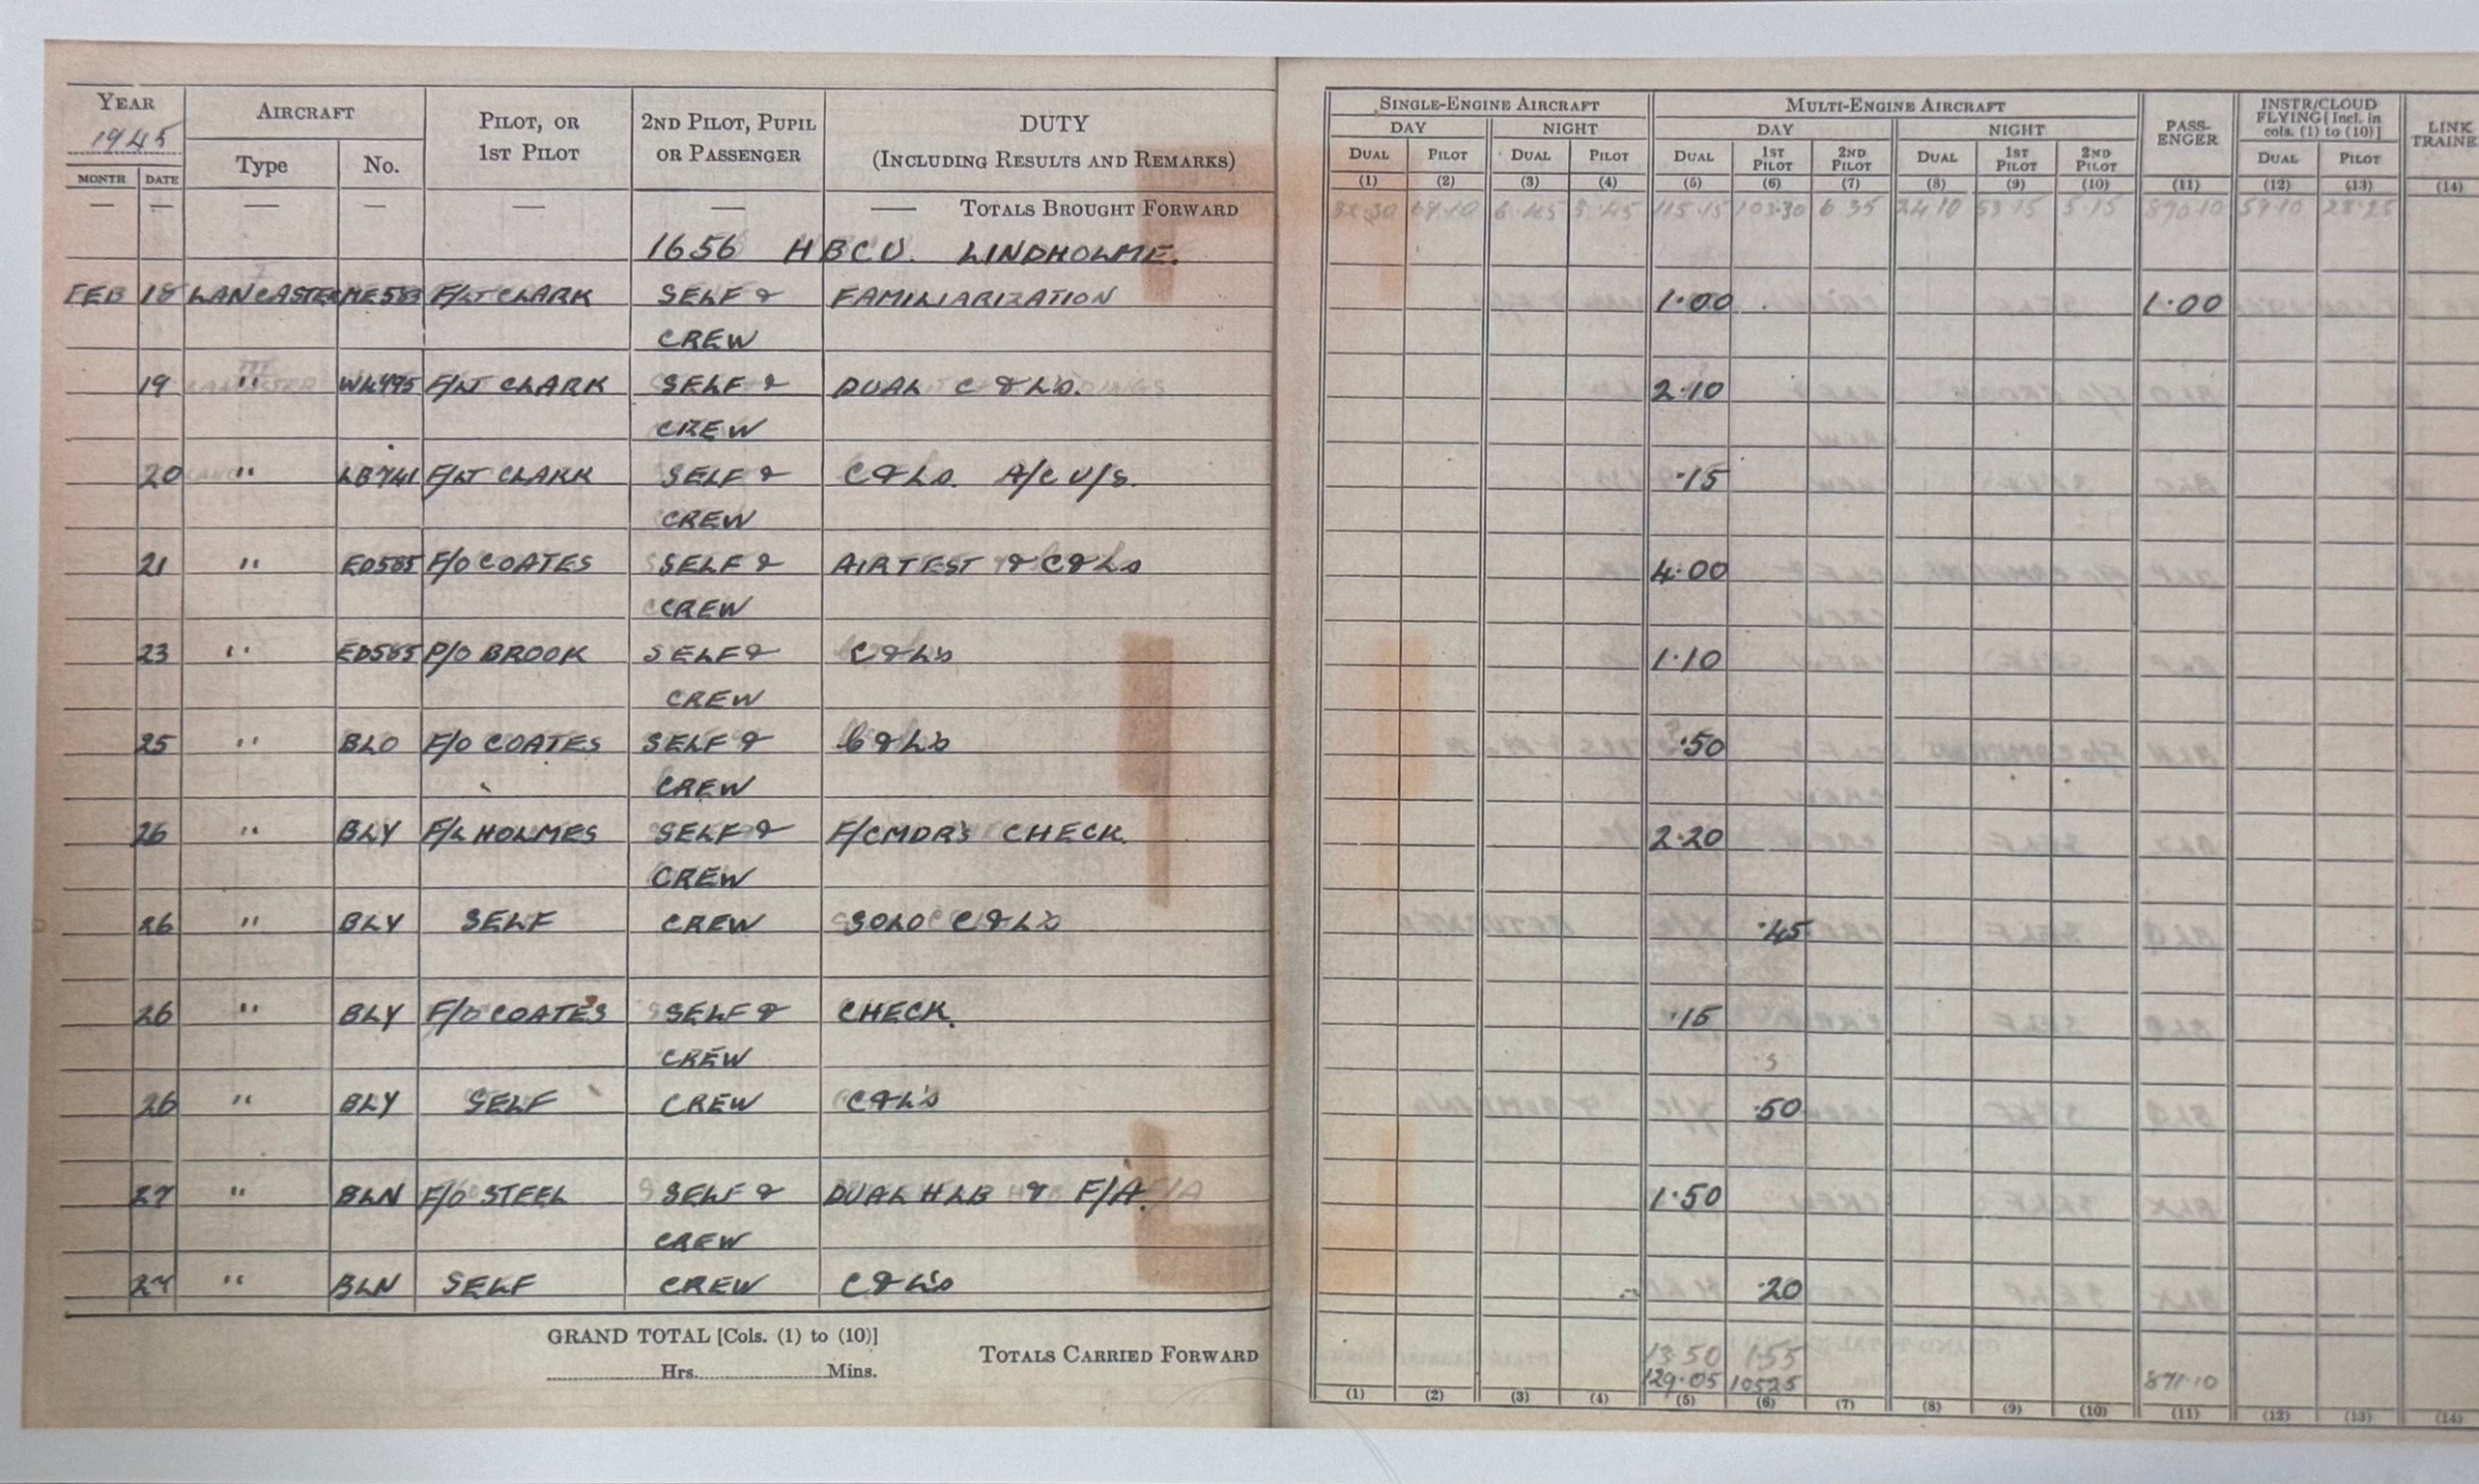 YEAR AIRCRAFT PILOT, OR 1ST PILOT 2ND PILOT, PUPIL OR PASSENGER DUTY (INCLUDING RESULTS AND REMARKS) SINGLE-ENGINE AIRCRAFT MULTI-ENGINE AIRCRAFT PASS-ENGER INSTR/CLOUD FLYING [Incl. in cols. (1) to (10)] LINK TRAINE
1945 DAY NIGHT DAY NIGHT
MONTH DATE Type No. DUAL PILOT DUAL PILOT DUAL 1ST PILOT 2ND PILOT DUAL 1ST PILOT 2ND PILOT DUAL PILOT
(1) (2) (3) (4) (5) (6) (7) (8) (9) (10) (11) (12) (13) (14)
— — — — — — — TOTALS BROUGHT FORWARD 6.45 115.15 103.30 6.35 24.10 53.15 5.15 870.10 59.10 28.25
1656 HBCU. LINDHOLME.
FEB 18 LANCASTER ME583 F/LT CLARK SELF & FAMILIARIZATION 1.00 1.00
CREW
III
19 " F/LT CLARK SELF & DUAL C & L's. 2.10
CREW
20 " F/LT CLARK SELF & C & Ls. A/C U/S. .15
CREW
21 " ED585 F/O COATES SELF & AIRTEST & C & Ls 4.00
CREW
23 " ED585 P/O BROOK SELF & C & L's 1.10
CREW
25 " BLO F/O COATES SELF & C & L's .50
CREW
26 " BLY F/L HOLMES SELF & F/CMDR's CHECK. 2.20
CREW
26 " BLY SELF CREW SOLO C & L's .45
26 " BLY F/O COATES SELF & CHECK. .15
CREW
26 " BLY SELF CREW C & L's .50
27 " BLN F/O STEEL SELF & DUAL HLB & F/A. 1.50
CREW
27 " BLN SELF CREW C & L's .20
GRAND TOTAL [Cols. (1) to (10)]
Hrs. Mins.
TOTALS CARRIED FORWARD
13.50 1.55
129.05 105.25 871.10
(1) (2) (3) (4) (5) (6) (7) (8) (9) (10) (11) (12) (13) (14)